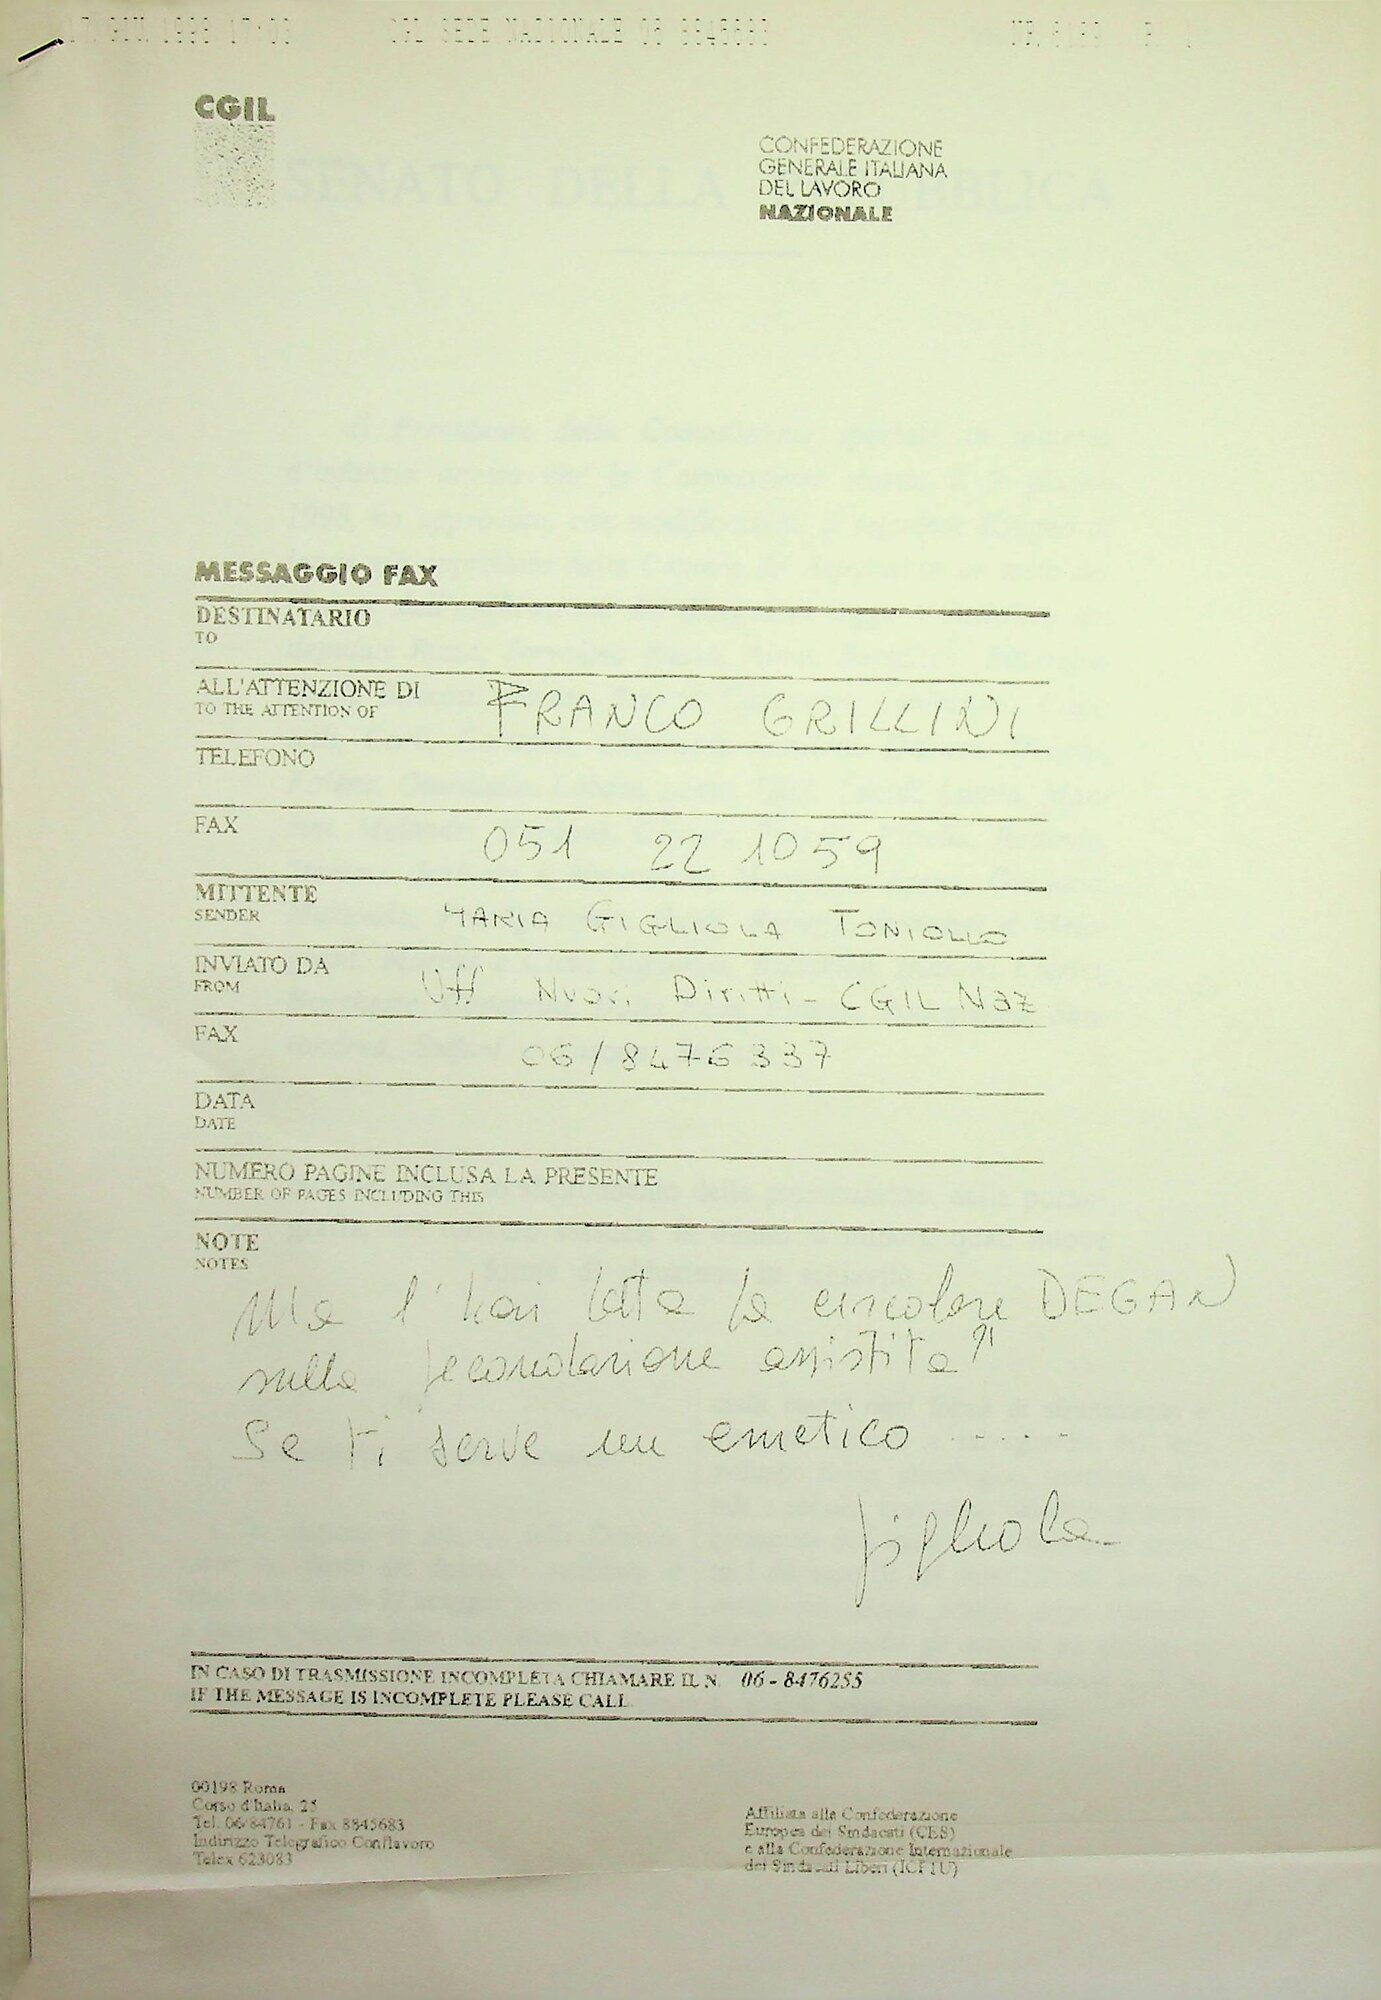 CGIL
CONFEDERAZIONE
GENERALE ITALIANA
DEL LAVORO
NAZIONALE
MESSAGGIO FAX
DESTINATARIO
TO
ALL'ATTENZIONE DI
TO THE ATTENTION OF
FRANCO GRILLINI
TELEFONO
FAX
051 22 1059
MITTENTE
SENDER
MARIA GIGLIOLA TONIOLLO
INVIATO DA
FROM
Uff Nuovi Diritti - CGIL Naz
FAX
06/8476337
DATA
DATE
NUMERO PAGINE INCLUSA LA PRESENTE
NUMBER OF PAGES INCLUDING THIS
NOTE
NOTES
Ma l'hai letta la circolare DEGAN
sulla fecondazione assistita?!
Se ti serve un emetico .....
Gigliola
IN CASO DI TRASMISSIONE INCOMPLETA CHIAMARE IL N. 06 - 8476255
IF THE MESSAGE IS INCOMPLETE PLEASE CALL
00198 Roma
Corso d'Italia, 25
Tel. 06/84761 - Fax 8845683
Indirizzo Telegrafico Conflavoro
Telex 623083
Affiliata alla Confederazione
Europea dei Sindacati (CES)
e alla Confederazione Internazionale
dei Sindacati Liberi (ICFTU)